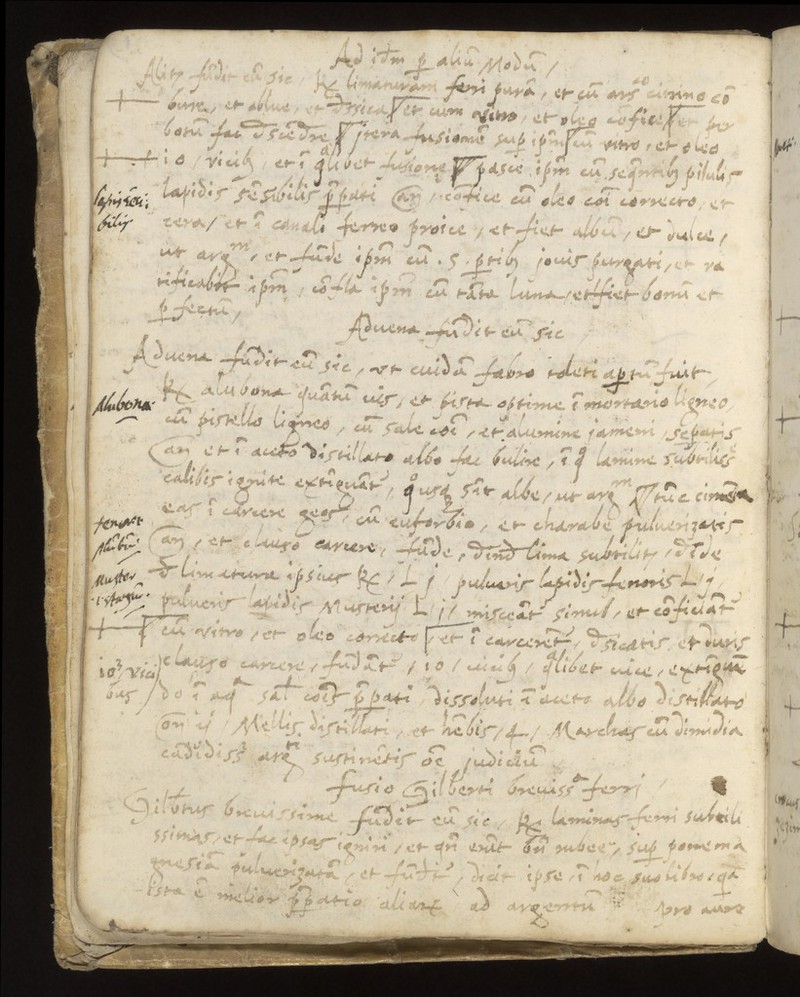 Ad idm̄ p̄ aliū Modū /
Alitz fūdit eū sic, ℞ limaturam ferri purā, et cū arsco citrino cō
bure, et ablue, et dsica et cum vitro, et oleo cōfice et per
botum fac dscēdre, itera fusionē sup ipm̄ cū vitro, et oleo
10 / vicib, et ī qlibet fusione pasce ipm̄ cū seqntib pilulis
lapidis sēsibilis pp̄ati an, cōfice cū oleo coī correcto, et
cera / et ī canali ferreo proice, et fiet albū, et dulce,
ut argm, et fūde ipm̄ cū . 5 . ptib jouis purgati, et ra
tificabit ipm̄, cōfla ipm̄ cū tāta luna, et fiet bonū et
pfectū,
Aduena fūdit eū sic
Aduena fūdit eū sic, vt cuidā fabro toleti aptū fuit,
Alubona: ℞ alubona quātum uis, et pista optime ī mortario ligneo,
cū pistello ligneo, cū sale coī, et alumine jameni, sepatis
an et ī aceto distillato albo fac bulire, ī q lamine subtiliss
calibis ignite extīguāt, qusq sīt albe, ut argm tūc cimēta
eas ī carcere geos, cū euforbio, et charabe pulverizatis
an, et clauso carcere, fūde, dind lima subtilitz, dīde
d limatura ipsius ℞, L j, pulueris lapidis fenoris L j,
pulueris lapidis Musterij L j, misceāt simul, et cōficiāt
cū vitro, et oleo correcto, et ī carcerēt, dsicatis et duris
10 vici clauso carcere, fūdāt, 10, uicib, qlibet uice, extīguē
bus do ī aq sal coīs pp̄ati, dissoluti ī aceto albo distillato
on ij, Mellis distillati, et hēbis, 4, Marchas cū dimidia
cādidiss argti sustinētis oē judiciū
Fusio Gilberti breuiss ferri,
Gilbtus breuissime fūdit eū sic, ℞ laminas ferri subtili
ssimas, et fac ipsas igniri, et qn erūt bn rubee, sup pone ma
gnesiā puluerizatā, et fūdt, dicit ipse, ī hoc suo libro, qa
ista ē melior pp̄atio aliarum ad argentum
pro aure